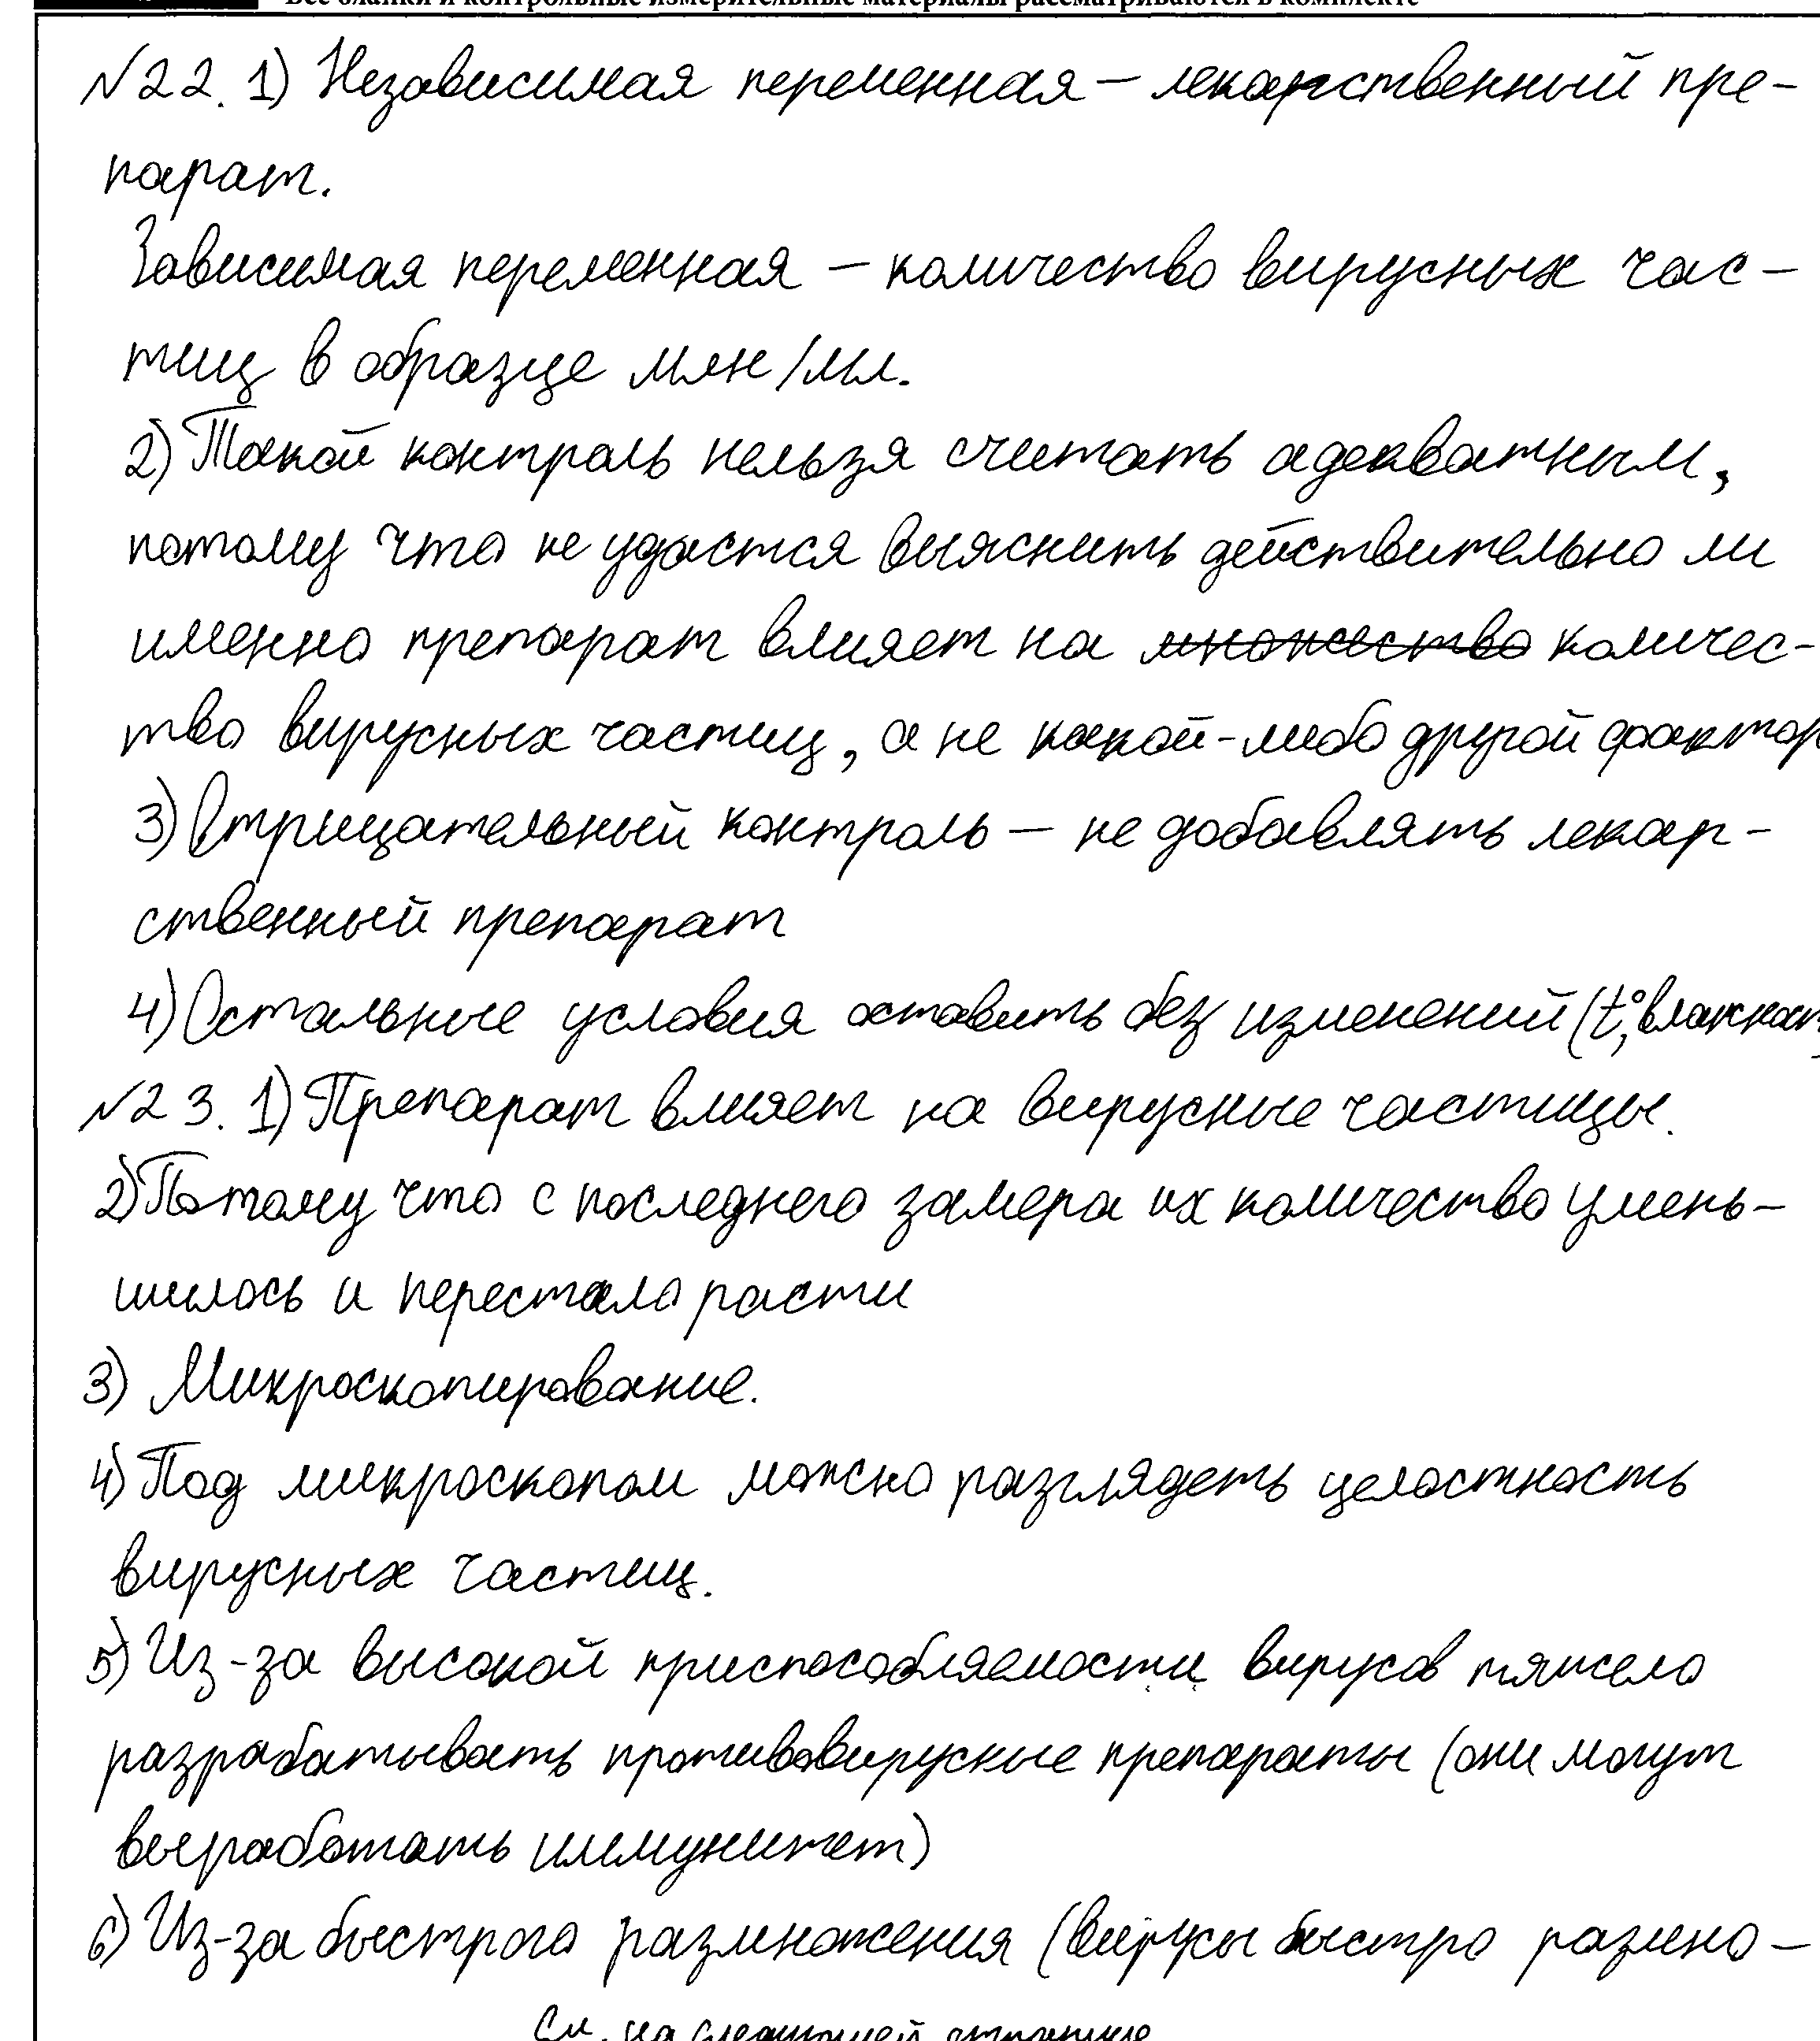 Все бланки и контрольные измерительные материалы рассматриваются в комплекте
№22. 1) Независимая переменная – лекарственный пре-
парат.
Зависимая переменная – количество вирусных час-
тиц в образце млн/мл.
2) Такой контроль нельзя считать адекватным,
потому что не удастся выяснить действительно ли
именно препарат влияет на множество количес-
тво вирусных частиц, а не какой-либо другой фактор
3) Отрицательный контроль – не добавлять лекар-
ственный препарат
4) Остальные условия оставить без изменений (t°, влажност
№23. 1) Препарат влияет на вирусные частицы.
2) Потому что с последнего замера их количество умень-
шилось и перестало расти
3) Микроскопирование.
4) Под микроскопом можно разглядеть целостность
вирусных частиц.
5) Из-за высокой приспособляемости вирусов тяжело
разрабатывать противовирусные препараты (они могут
выработать иммунитет)
6) Из-за быстрого размножения (вирусы быстро размно-
См. на следующей странице